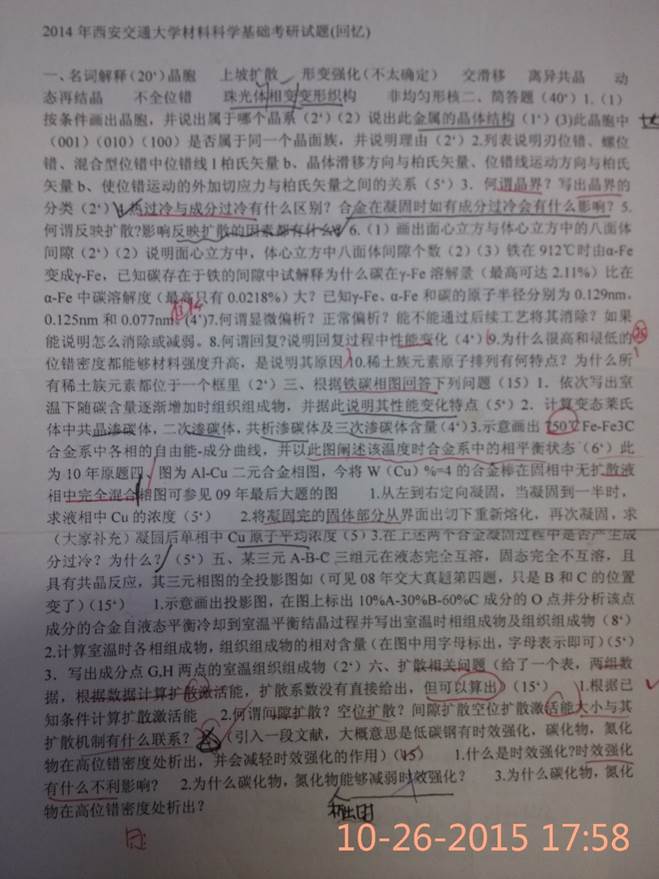 2014年西安交通大学材料科学基础考研试题(回忆)
一、名词解释(20‘)晶胞 上坡扩散 形变强化(不太确定) 交滑移 离异共晶 动
态再结晶 不全位错 珠光体相变变形织构 非均匀形核二、简答题(40‘)1.(1)
按条件画出晶胞,并说出属于哪个晶系(2‘)(2)说出此金属的晶体结构(1‘)(3)此晶胞中
(001)(010)(100)是否属于同一个晶面族,并说明理由(2‘)2.列表说明刃位错、螺位
错、混合型位错中位错线l柏氏矢量b、晶体滑移方向与柏氏矢量、位错线运动方向与柏氏
矢量b、使位错运动的外加切应力与柏氏矢量之间的关系(5‘)3.何谓晶界?写出晶界的
分类(2‘)4.热过冷与成分过冷有什么区别?合金在凝固时如有成分过冷会有什么影响?5.
何谓反映扩散?影响反映扩散的因素都有什么?6.(1)画出面心立方与体心立方中的八面体
间隙(2‘)(2)说明面心立方中,体心立方中八面体间隙个数(2)(3)铁在912℃时由α-Fe
变成γ-Fe,已知碳存在于铁的间隙中试解释为什么碳在γ-Fe溶解量(最高可达2.11%)比在
α-Fe中碳溶解度(最高只有0.0218%)大?已知γ-Fe、α-Fe和碳的原子半径分别为0.129nm、
0.125nm和0.077nm(4‘)7.何谓显微偏析?正常偏析?能不能通过后续工艺将其消除?如果
能说明怎么消除或减弱。8.何谓回复?说明回复过程中性能变化(4‘)9.为什么很高和很低的
位错密度都能够材料强度升高,是说明其原因10.稀土族元素原子排列有何特点?为什么所
有稀土族元素都位于一个框里(2‘)三、根据铁碳相图回答下列问题(15)1.依次写出室
温下随碳含量逐渐增加时组织组成物,并据此说明其性能变化特点(5‘)2.计算变态莱氏
体中共晶渗碳体,二次渗碳体,共析渗碳体及三次渗碳体含量(4‘)3.示意画出750℃Fe-Fe3C
合金系中各相的自由能-成分曲线,并以此图阐述该温度时合金系中的相平衡状态(6‘)此
为10年原题四 图为Al-Cu二元合金相图,今将W(Cu)%=4的合金棒在固相中无扩散液
相中完全混合相图可参见09年最后大题的图 1.从左到右定向凝固,当凝固到一半时,
求液相中Cu的浓度(5‘) 2.将凝固完的固体部分从界面出切下重新熔化,再次凝固,求
(大家补充)凝固后单相中Cu原子平均浓度(5)3.在上述两个合金凝固过程中是否产生成
分过冷?为什么?(5‘)五、某三元A-B-C三组元在液态完全互溶,固态完全不互溶,且
具有共晶反应,其三元相图的全投影图如(可见08年交大真题第四题,只是B和C的位置
变了)(15‘) 1.示意画出投影图,在图上标出10%A-30%B-60%C成分的O点并分析该点
成分的合金自液态平衡冷却到室温平衡结晶过程并写出室温时相组成物及组织组成物(8‘)
2.计算室温时各相组成物,组织组成物的相对含量(在图中用字母标出,字母表示即可)(5‘)
3.写出成分点G,H两点的室温组织组成物(2‘)六、扩散相关问题(给了一个表,两组数
据,根据数据计算扩散激活能,扩散系数没有直接给出,但可以算出)(15‘) 1.根据已
知条件计算扩散激活能 2.何谓间隙扩散?空位扩散?间隙扩散空位扩散激活能大小与其
扩散机制有什么联系?(引入一段文献,大概意思是低碳钢有时效强化,碳化物,氮化
物在高位错密度处析出,并会减轻时效强化的作用)(15) 1.什么是时效强化?时效强化
有什么不利影响? 2.为什么碳化物,氮化物能够减弱时效强化? 3.为什么碳化物,氮化
物在高位错密度处析出?
10-26-2015 17:58